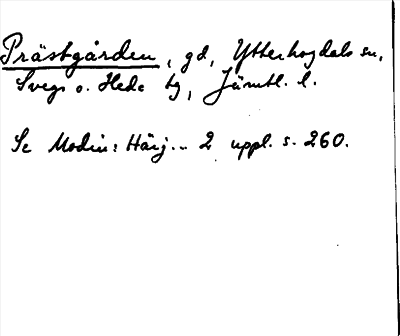 Prästgården, gd, Ytterhogdals sn,
Svegs o. Hede tg, Jämtl. l.
Se Modin: Härj... 2 uppl. s. 260.